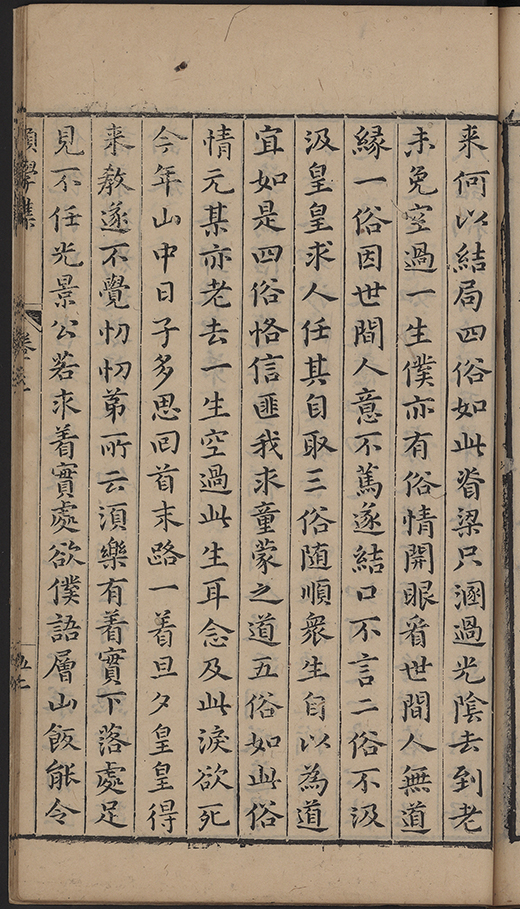 来何以結局四俗如此脊梁只溷過光陰去到老
未免空過一生僕亦有俗情開眼看世間人無道
緣一俗因世間人意不篤遂結口不言二俗不汲
汲皇皇求人任其自取三俗随順衆生自以為道
宜如是四俗恪信匪我求童蒙之道五俗如此俗
情元某亦老去一生空過此生耳念及此淚欲死
今年山中日子多思回首末路一着旦夕皇皇得
来教遂不覺忉忉苐所云湏樂有着實下落處足
見不任光景公若求着實處欲僕語層山飯能令
學集
卷之